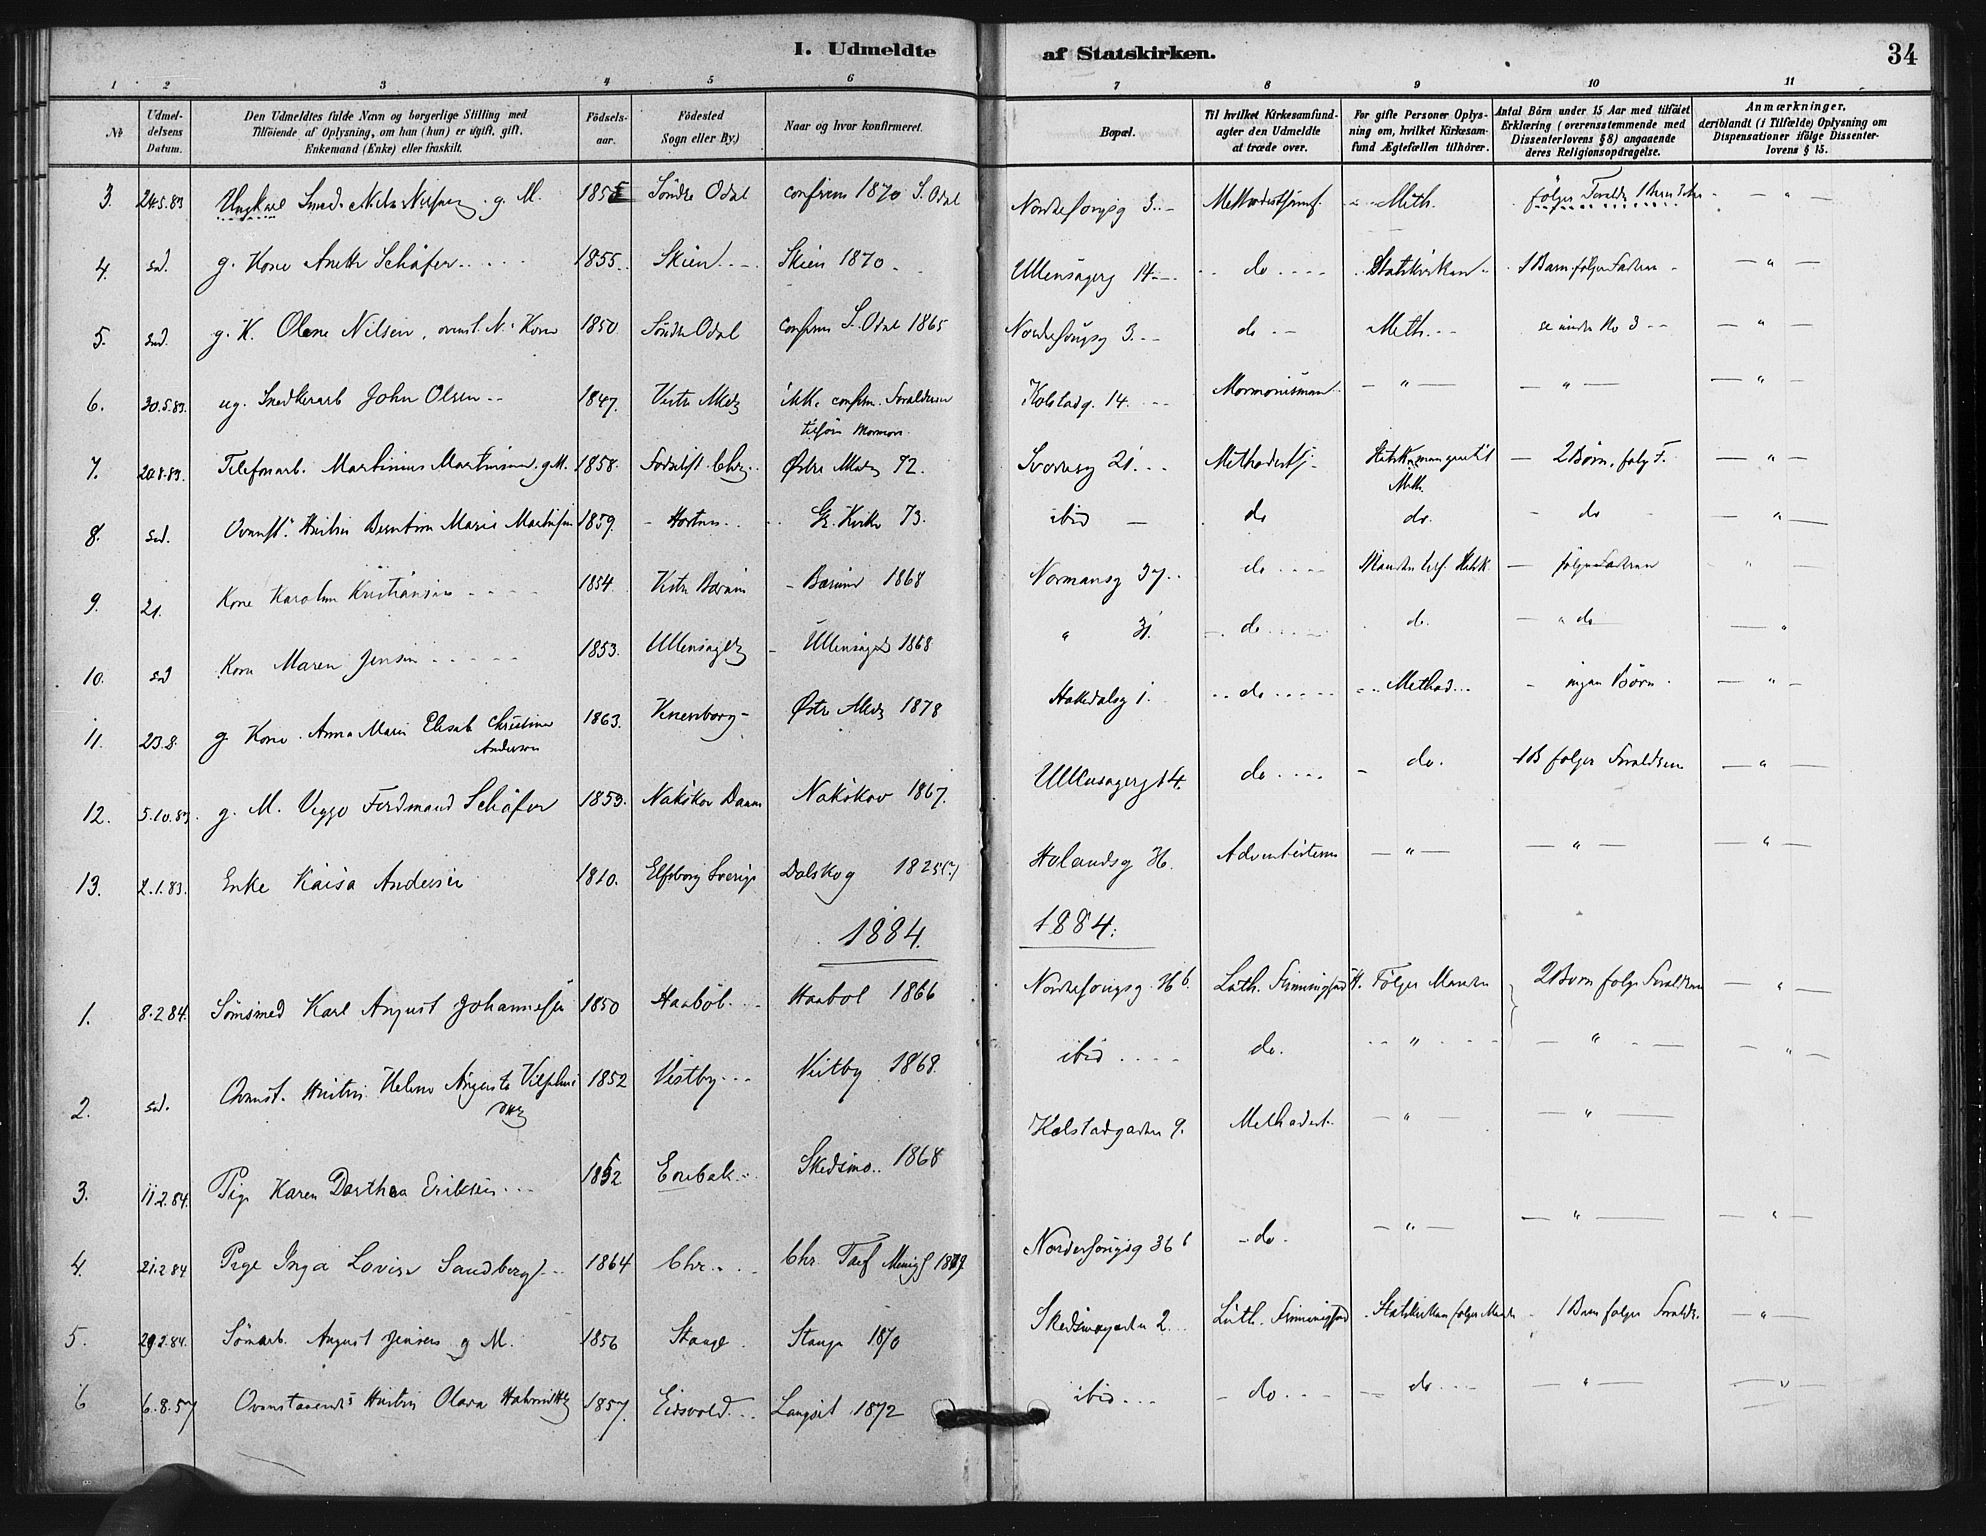 I. Udmeldte af Statskirken. 34
1 2 3 4 5 6 7 8 9 10 11
№
Udmel-
delsens
Datum.
Den Udmeldtes fulde Navn og borgerlige Stilling med
Tilföiende af Oplysning, om han (hun) er ugift, gift,
Enkemand (Enke) eller fraskilt.
Födsels-
aar.
Födested
Sogn eller By.)
Naar og hvor konfirmeret.
Bopæl.
Til hvilket Kirkesamfund-
agter den Udmeldte
at træde over.
For gifte Personer Oplys-
ning om, hvilket Kirkesam-
fund Ægtefællen tilhörer.
Antal Börn under 15 Aar med tilföiet
Erklæring (overensstemmende med
Dissenterlovens § 8) angaaende
deres Religionsopdragelse.
Anmærkninger,
deriblandt (i Tilfælde) Oplysning om
Dispensationer ifölge Dissenter-
lovens § 15.
3. 24.5.83 Ungkarl Smed Nils Nilsen g. M. 1855 Söndre Odal confirm 1870 S. Odal Nordrefongsg 3. Methodistsamf. Meth. følger Foraldr - " -
4. sd. g. Kone Anette Schäfer 1855. Skien Skien 1870 Ullensagerg 14 do Statskirken 1 Barn følger Faderen - " -
5. sd. g. K. Olene Nilsen, ovenst. N.s Kone 1850 Söndre Odal confirm S. Odal 1865 Nordrefongsg 3. do Meth. se under No 3 - " -
6. 30.5.83. ug. Snedkerarb John Olsen 1847. Vestre Akers ikke confirm. Forældrene
tilhøre Mormon Kolstadg. 14. Mormonisman - " - - " - - " -
7. 20.8.83. Telefonarb. Martinius Martinsen. g M. 1858. Fødselsst. Chr. Østre Aker 72. Svoresg 21. Methodistsj Statsk. men gaar til
Meth. 2 Børn, følg F. - " -
8. sd. Ovennst. Hustru Berntine Marie Martinsen 1859. Horten Gr. Kirke 73. ibid do do. do - " -
9. 21. Kone Karoline Kristiansen 1854. Vestre Bærum Bærum 1868 Normansg 37. do Manden tilh. Statsk følger Faderen "
10. sd Kone Maren Jensen 1853. Ullensager Ullensager 1868 " 31. do do. " do - "
11. 23.8. g Kone Anna Marie Elisab Christine
Andersen 1863. Venersborg Østre Aker 1878 Hakedalsg 1. do Method. ingen Børn. - " -
12. 5.10.83. g. M. Viggo Ferdinand Schäfer 1853. Nakskov Danm Nakskov 1867. Ullensagerg 14. do do. 1 B følger Forældrene - " -
13. 2.1.83. Enke Kaisa Andersen 1810. Elfsborg Sverige Dalskog 1825 (?) Hølandsg 36. Adventisterne - " - - " - - " -
1884. 1884.
1. 8.2.84. Sømsmed Karl August Johannesen 1850 Haabøl. Haabøl 1866 Nordrefongsg. 36 b. Luth. Frimenighed Følger Manden 2 Børn følge Foraldrene - " -
2. sd. Ovennst. Hustru Helene Auguste Vilhelmsdtr 1852 Vestby Vestby 1868. ibid do. " - " - - " -
3. 11.2.84. Pige Karen Dorthea Eriksen 1852 Enebak Skedsmo 1868 Kolstadgaden 9. Methodist. - " - - " -
4. 21.2.84 Pige Inga Lovise Sandberg 1864 Chr. Chr. Tref Menigh 1879 Nordrefongsg 36 b do. - " - - " - - " -
5. 29.2.84. Sömarb. August Jensen g M. 1856 Stange. Stange 1870 Skedsmogaden 2. Luth. Frimenighed Statskirken følger Manden 1 Barn følger Foraldr. - " -
6 6.8.57 Ovenstaaendes Hustru Olava Halvorsdtr 1857. Eidsvold Langset 1872 ibid do do - " - - " -